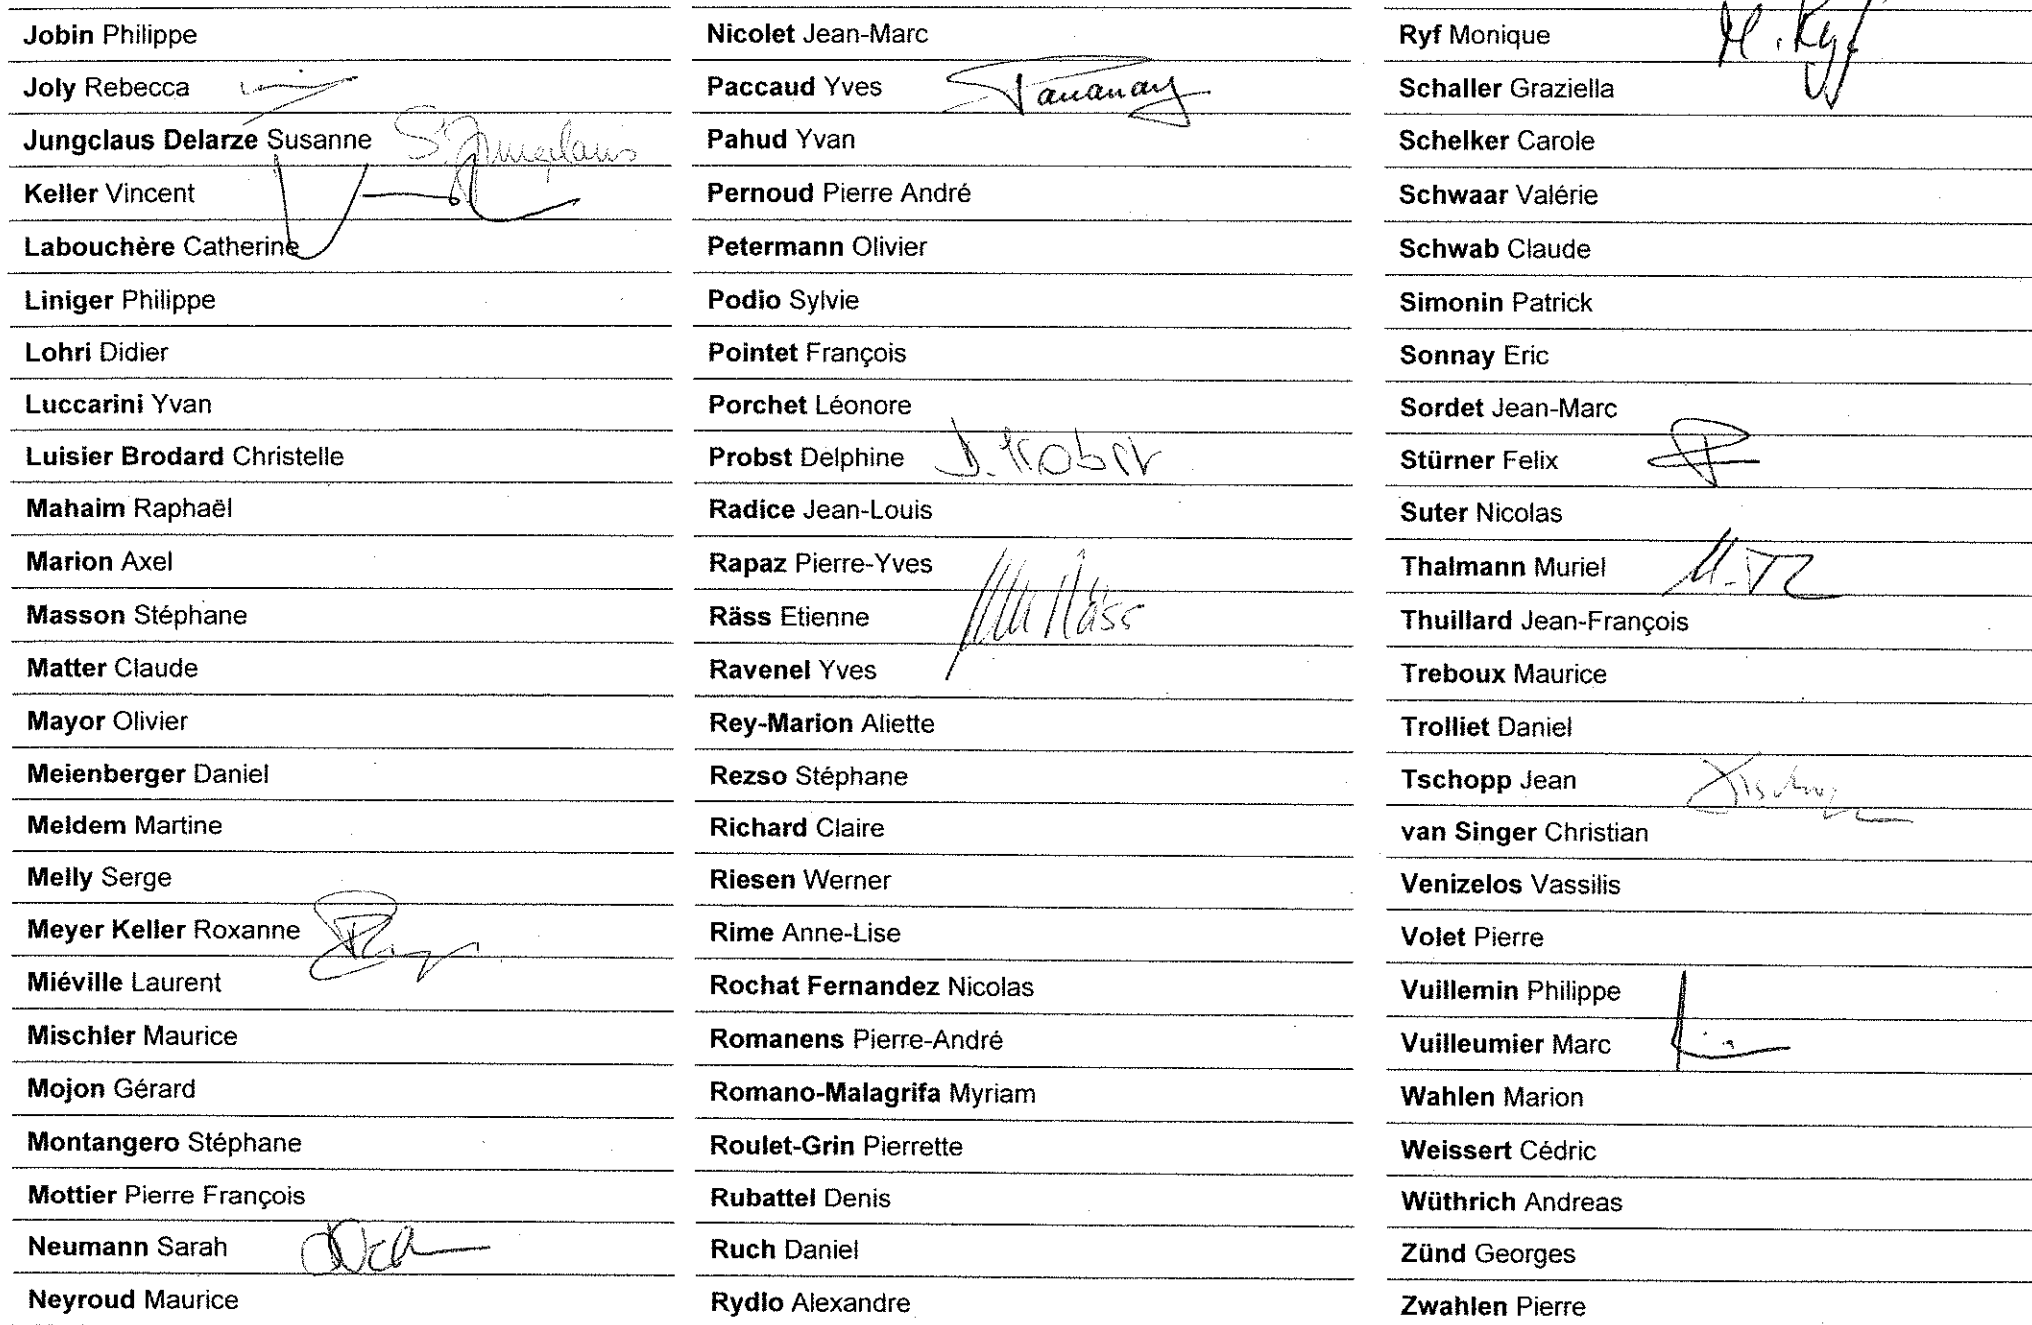 Jobin Philippe
Joly Rebecca
Jungclaus Delarze Susanne S. Jungclaus
Keller Vincent
Labouchère Catherine
Liniger Philippe
Lohri Didier
Luccarini Yvan
Luisier Brodard Christelle
Mahaim Raphaël
Marion Axel
Masson Stéphane
Matter Claude
Mayor Olivier
Meienberger Daniel
Meldem Martine
Melly Serge
Meyer Keller Roxanne
Miéville Laurent
Mischler Maurice
Mojon Gérard
Montangero Stéphane
Mottier Pierre François
Neumann Sarah
Neyroud Maurice
Nicolet Jean-Marc
Paccaud Yves
Pahud Yvan
Pernoud Pierre André
Petermann Olivier
Podio Sylvie
Pointet François
Porchet Léonore
Probst Delphine D. Probst
Radice Jean-Louis
Rapaz Pierre-Yves
Räss Etienne Räss
Ravenel Yves
Rey-Marion Aliette
Rezso Stéphane
Richard Claire
Riesen Werner
Rime Anne-Lise
Rochat Fernandez Nicolas
Romanens Pierre-André
Romano-Malagrifa Myriam
Roulet-Grin Pierrette
Rubattel Denis
Ruch Daniel
Rydlo Alexandre
Ryf Monique M. Ryf
Schaller Graziella
Schelker Carole
Schwaar Valérie
Schwab Claude
Simonin Patrick
Sonnay Eric
Sordet Jean-Marc
Stürner Felix
Suter Nicolas
Thalmann Muriel
Thuillard Jean-François
Treboux Maurice
Trolliet Daniel
Tschopp Jean
van Singer Christian
Venizelos Vassilis
Volet Pierre
Vuillemin Philippe
Vuilleumier Marc
Wahlen Marion
Weissert Cédric
Wüthrich Andreas
Zünd Georges
Zwahlen Pierre